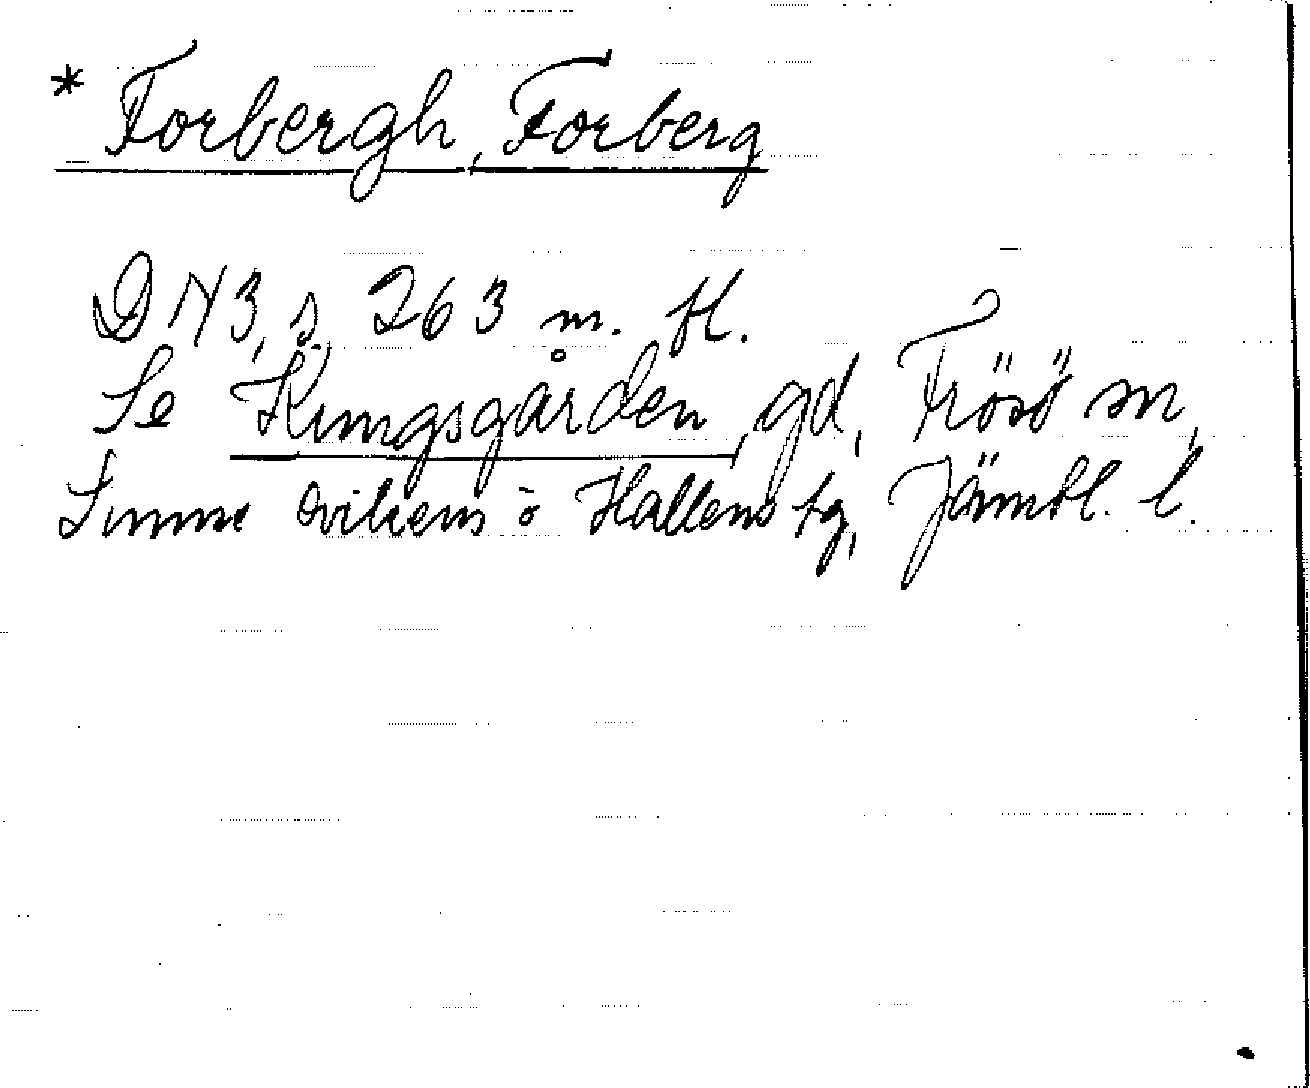 * Forbergh, Forberg
DN3, s. 263 m. fl.
Se Kungsgården, gd, Frösö sn,
Sunne Ovikens o Hallens tg, Jämtl. l.